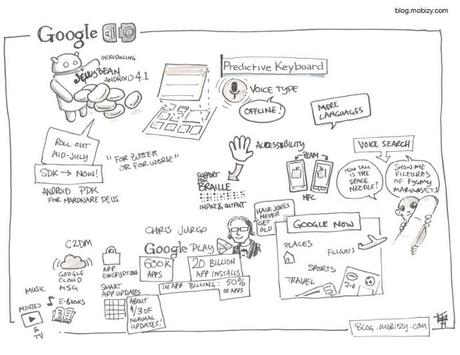 blog.mobizy.com
Google I/O
INTRODUCING
JELLY BEAN
ANDROID 4.1
Predictive Keyboard
VOICE TYPE
OFFLINE!
MORE
LANGUAGES
ROLL OUT
MID-JULY
SDK → NOW!
ANDROID PDK
FOR HARDWARE DEVS
"FOR BUTTER
OR FOR WORSE"
ACCESSIBILITY
SUPPORT
FOR
BRAILLE
INPUT & OUTPUT
BEAM
NFC
VOICE SEARCH
HOW TALL
IS THE
SPACE
NEEDLE?
SHOW ME
PICTURES
OF PYGMY
MARMOSETS
CHRIS YURGO
Google PLAY
600K
APPS
20 BILLION
APP INSTALLS
IN APP BILLING: 50%
OF APPS
HAIR JOKES
NEVER
GET
OLD
GOOGLE NOW
PLACES
FLIGHTS
SPORTS
2-0
TRAVEL
C2DM
GOOGLE
CLOUD
MSG
APP
ENCRYPTION
SMART
APP UPDATES
ABOUT
1/3 OF
NORMAL
UPDATES!
MUSIC
MOVIES
& TV
E-BOOKS
BLOG.MOBIZY.COM